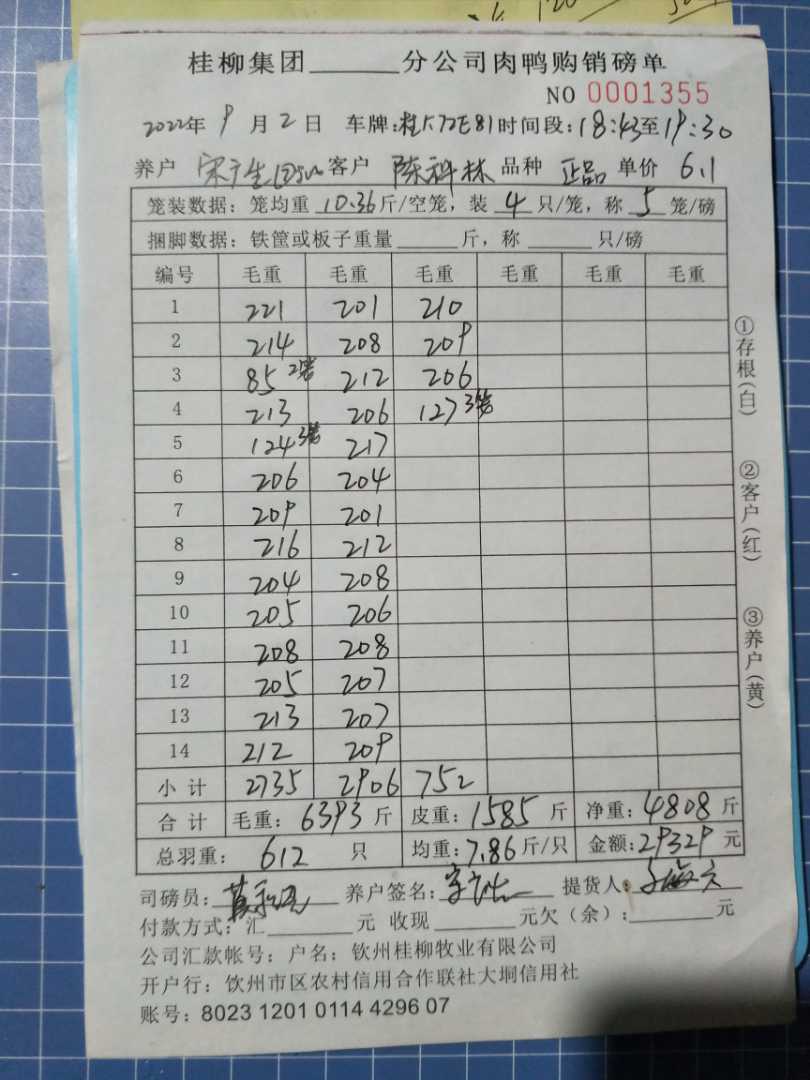 桂柳集团______分公司肉鸭购销磅单
NO 0001355
2022年 9 月 2 日 车牌:桂K72E81 时间段:18:43至19:30
养户 宋广生 客户 陈科林 品种 正品 单价 6.1
笼装数据: 笼均重 10.36 斤/空笼, 装 4 只/笼, 称 5 笼/磅
捆脚数据: 铁筐或板子重量______斤, 称______只/磅
编号 毛重 毛重 毛重 毛重 毛重 毛重
1 221 201 210
2 214 208 209
3 85 2笼 212 206
4 213 206 127 3笼
5 124 3笼 217
6 206 204
7 209 201
8 216 212
9 204 208
10 205 206
11 208 208
12 205 207
13 213 207
14 212 209
小计 2735 2906 752
合计 毛重: 6393 斤 皮重: 1585 斤 净重: 4808 斤
总羽重: 612 只 均重: 7.86 斤/只 金额: 29329 元
①存根(白)
②客户(红)
③养户(黄)
司磅员: 养户签名: 提货人:
付款方式: 汇______元 收现______元欠(余):______元
公司汇款帐号: 户名: 钦州桂柳牧业有限公司
开户行: 钦州市区农村信用合作联社大垌信用社
账号: 8023 1201 0114 4296 07